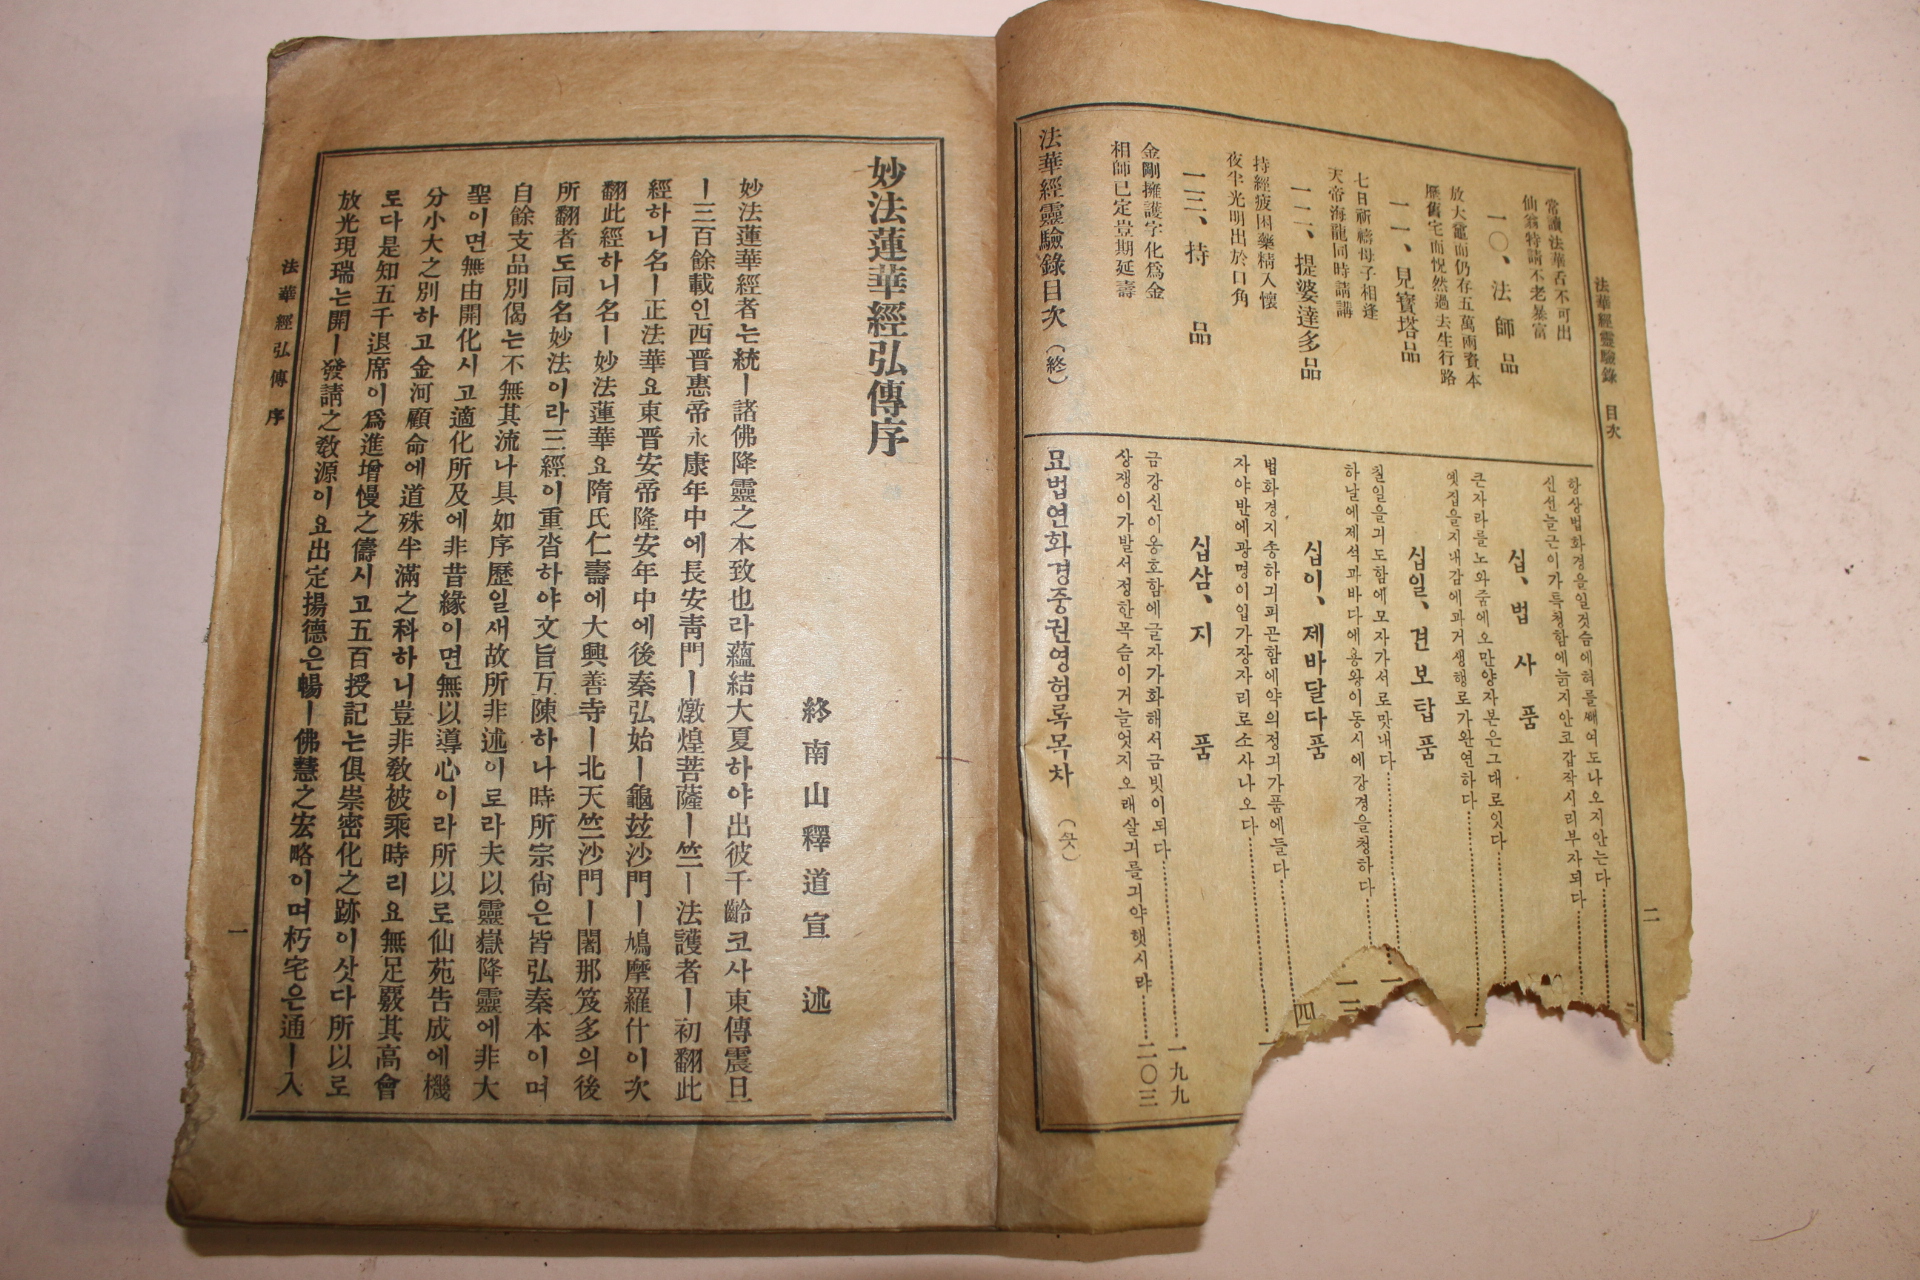 法華經靈驗錄 目次
二
常讀法華舌不可出
仙翁特請不老暴富
一〇、法師品
放大鼈而仍存五萬兩資本
歷舊宅而恍然過去生行路
一一、見寶塔品
七日祈禱母子相逢
天帝海龍同時請講
一二、提婆達多品
持經疲困藥精入懷
夜半光明出於口角
一三、持品
金剛擁護字化爲金
相師已定豈期延壽
法華經靈驗錄目次(終)
항상법화경을일것슴에혀를빼여도나오지안는다
신선늘근이가특청함에늙지안코갑작시리부자되다
십、법사품
큰자라를노와줌에오만양자본은그대로잇다
옛집을지내감에과거생행로가완연하다
십일、견보탑품
칠일을긔도함에모자가서로맛내다
하날에제석과바다에용왕이동시에강경을청하다
십이、제바달다품
법화경지송하기피곤함에약의정긔가품에들다
자야반에광명이입가장자리로소사나오다
십삼、지품
금강신이옹호함에글자가화해서금빗이되다 一九九
상쟁이가발서정한목슴이거늘엇지오래살기를긔약햇시랴 二〇三
묘법연화경중권영험록목차(끗)
妙法蓮華經弘傳序
終南山釋道宣 述
妙法蓮華經者는統ㅣ諸佛降靈之本致也라蘊結大夏하야出彼千齡코사東傳震旦
ㅣ三百餘載인西晋惠帝永康年中에長安青門ㅣ燉煌菩薩ㅣ竺ㅣ法護者ㅣ初翻此
經하니名ㅣ正法華요東晋安帝隆安年中에後秦弘始ㅣ龜玆沙門ㅣ鳩摩羅什이次
翻此經하니名ㅣ妙法蓮華요隋氏仁壽에大興善寺ㅣ北天竺沙門ㅣ闍那笈多의後
所翻者도同名妙法이라三經이重沓하야文旨互陳하나時所宗尙은皆弘秦本이며
自餘支品別偈는不無其流나具如序歷일새故所非述이로라夫以靈嶽降靈에非大
聖이면無由開化시고適化所及에非昔緣이면無以導心이라所以로仙苑告成에機
分小大之別하고金河顧命에道殊半滿之科하니豈非敎被乘時리요無足覈其高會
로다是知五千退席이爲進增慢之儔시고五百授記는俱崇密化之跡이삿다所以로
放光現瑞는開ㅣ發請之敎源이요出定揚德은暢ㅣ佛慧之宏略이며朽宅은通ㅣ入
法華經弘傳 序
一